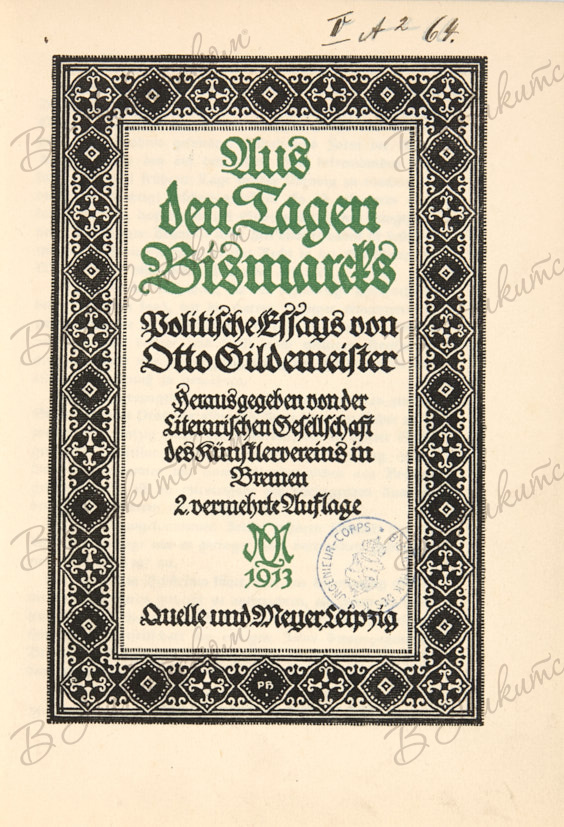 V A 2 64.
Aus
den Tagen
Bismarcks
Politische Essays von
Otto Gildemeister
Herausgegeben von der
Literarischen Gesellschaft
des Künstlervereins in
Bremen
2. vermehrte Auflage
QM
1913
Quelle und Meyer Leipzig
INGENIEUR-CORPS
PB